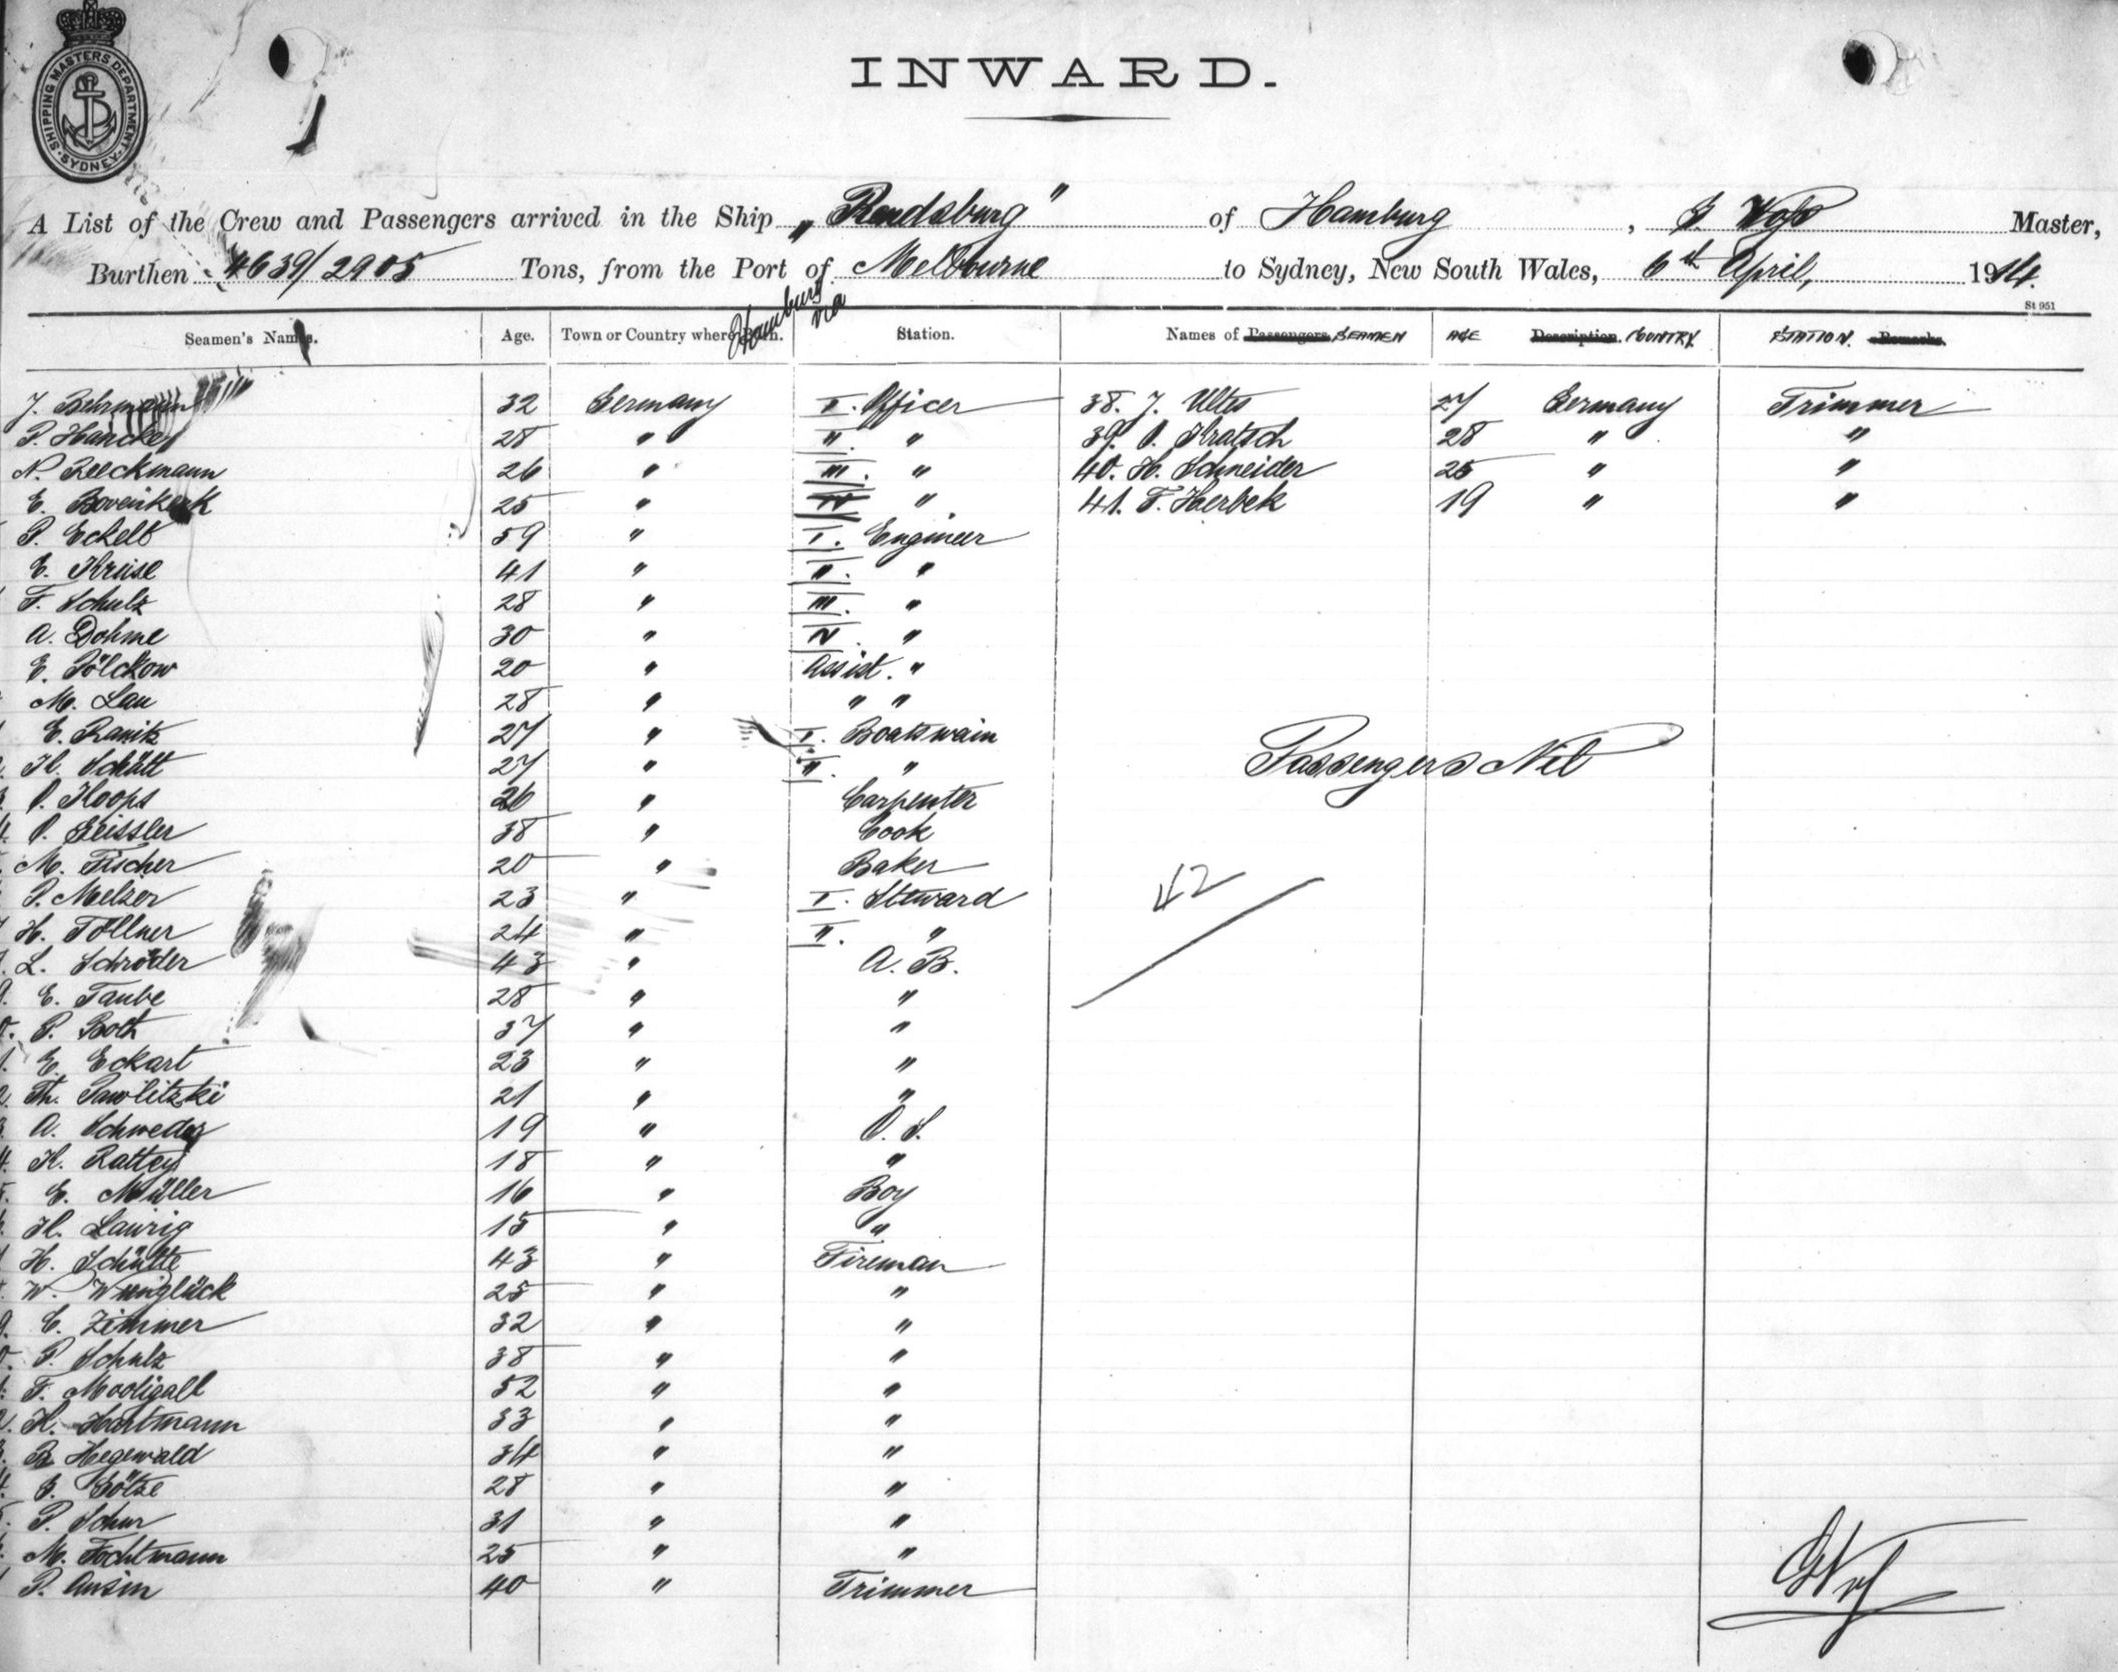 SHIPPING MASTERS DEPARTMENT
SYDNEY
INWARD.
A List of the Crew and Passengers arrived in the Ship „Rendsburg" of Hamburg,
Master,
Burthen 4639/2905 Tons, from the Port of Melbourne to Sydney, New South Wales, 6th April, 1914.
Hamburg via
St 951
Seamen's Names. Age. Town or Country where Born. Station. Names of Passengers SEAMEN AGE Description. COUNTRY STATION. Remarks.
J. Behrmann 32 Germany I. Officer 38. J. Ultes 27 Germany Trimmer
P. Hancke 28 " II. " 39. O. Kratsch 28 " "
N. Reeckmann 26 " III. " 40. H. Schneider 25 " "
E. Bovenkerk 25 " IV " 41. F. Herbek 19 " "
P. Eckelt 59 " I. Engineer
E. Kruse 41 " II. "
F. Schulz 28 " III. "
A. Dohme 30 " IV. "
E. Pölckow 20 " Assist. "
M. Lau 28 " " "
E. Ranitz 27 " I. Boatswain
H. Schütt 27 " II. "
Passengers Nil
O. Koops 26 " Carpenter
O. Geissler 38 " Cook
M. Fischer 20 " Baker
42
P. Melzer 23 " I. Steward
H. Töllner 24 " II. "
L. Schröder 43 " A. B.
9. E. Taube 28 " "
P. Both 37 " "
1. E. Eckart 23 " "
2. Th. Pawlitzki 21 " "
A. Schweder 19 " O. S.
4. K. Rattey 18 " "
E. Müller 16 " Boy
H. Laurig 15 " "
H. Schütte 43 " Fireman
W. Wünglück 25 " "
9. E. Zimmer 32 " "
P. Schulz 38 " "
F. Mooligall 52 " "
K. Hartmann 33 " "
Hegewald 34 " "
4. G. Götze 28 " "
P. Schur 31 " "
M. Fochtmann 25 " "
P. Ansin 40 " Trimmer